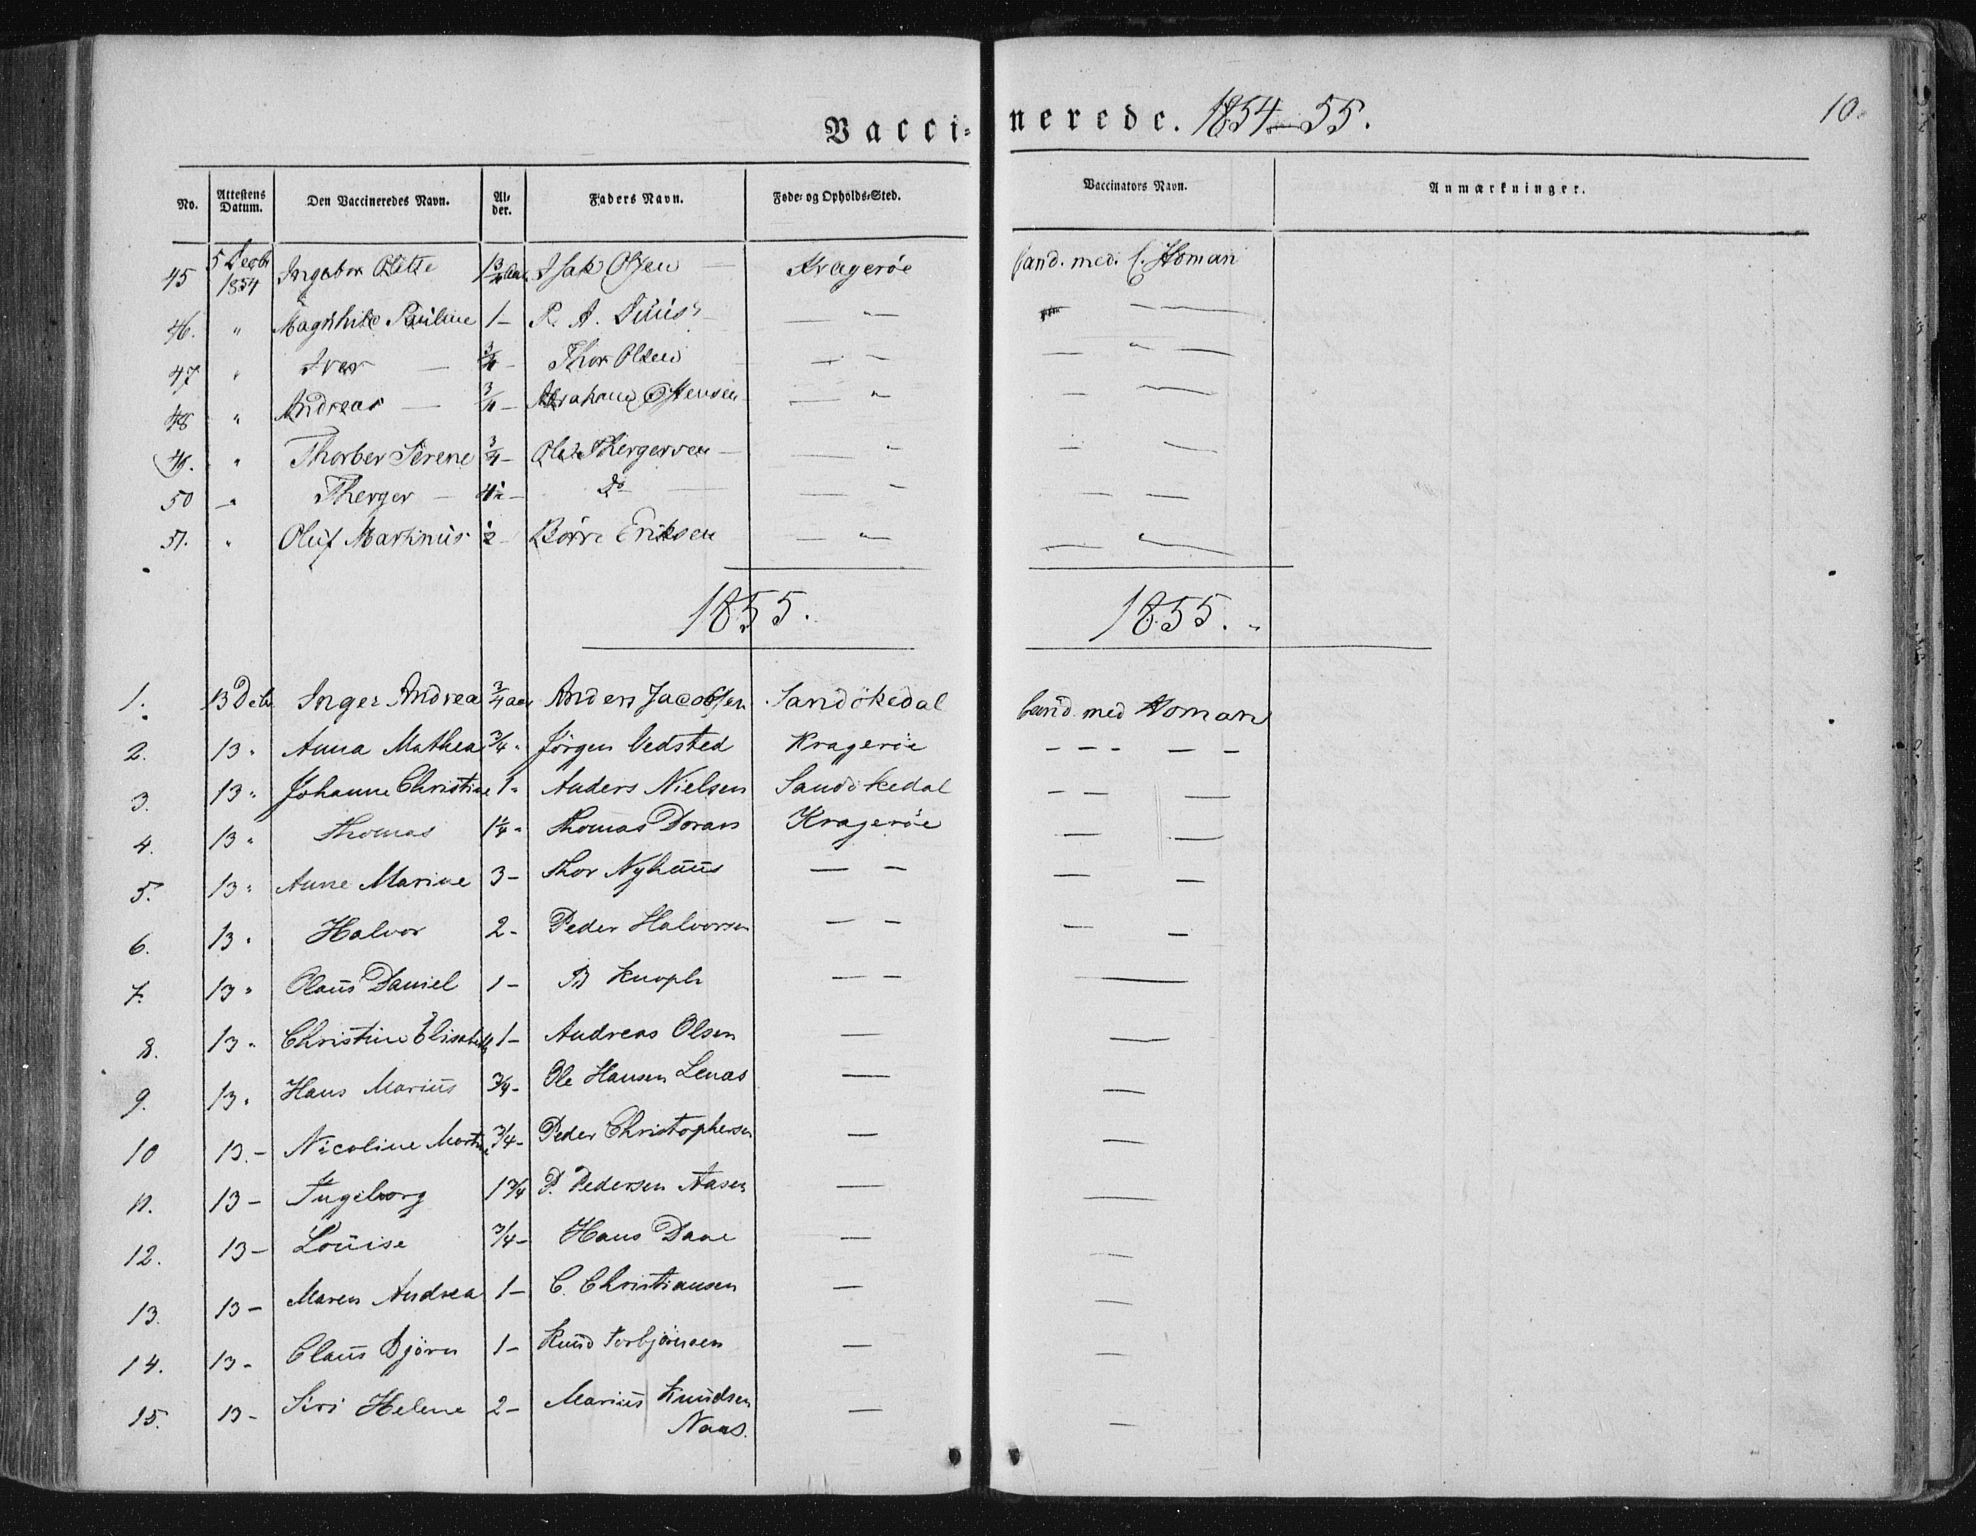 Vaccinerede. 1854-55.
10.
No. Attestens Datum. Den Vaccineredes Navn. Al-der. Faders Navn. Føde- og Opholds-Sted. Vaccinators Navn. Anmærkninger.
45 5 Decbr 1854 Ingebor Olette 1 3/4 Isak Olsen — Kragerøe Cand. med. C. Homan
46. " Maghilde Pauline 1 — P. A. Duus — " —
47 " Iver — 3/4 — Thor Olsen — " —
48 " Andreas — 3/4 — Abraham — " —
49. " Thorber Serene 3/4 — Ole Thergersen — — " —
50 " Therger — 4 1/2 — Do — — " —
51. " Oluf Martinius 1/2 — Børre Eriksen — " —
1855. 1855.
1. 13 Debr Inger Andrea 3/4 aar Anders Jacobsen Sandøkedal Cand. med Homan
2. 13 " Anna Mathea 3/4 " Jörgen Vedsted Kragerøe — — — — —
3. 13 " Johanne Christine 1 " Anders Nielsen Sandökedal — — —
4. 13 " Thomas 1 1/4 " Thomas Dorans Kragerøe — —
5. 13 " Anne Marine 3 — Thor Nyhuus — — — —
6. 13 " Halvor 2 — Peder Halvorsen — — — —
7. 13 " Olaus Daniel 1 — — — —
8. 13 " Christine Elisabeth 1 — Andreas Olsen — —
9. 13 " Hans Marius 3/4 — Ole Hansen Lenas — —
10 13 — Nicoline Martine 3/4 — Peder Christophersen — —
11. 13 — Ingeborg 1 3/4 P. Pedersen Aasen — —
12. 13 — Louise 3/4 — Hans Dane — —
13. 13 — Maren Andrea 1 — C. Christiansen — —
14. 13 — Claus Bjørn 1 — Knud Torbjörnsen — —
15. 13 — Siri Helene 2 — Marius Knudsen — —
Naas.